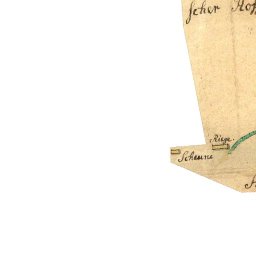 scher Hof
Riege.
Scheune